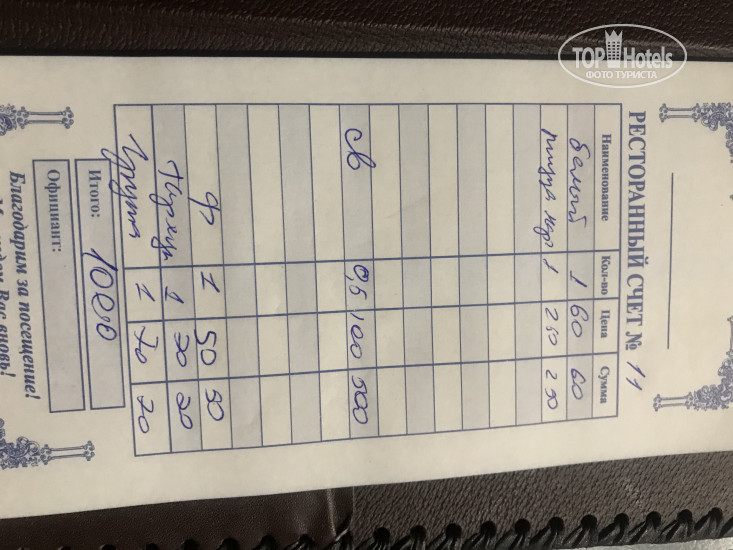 TOP Hotels
ФОТО ТУРИСТА
РЕСТОРАННЫЙ СЧЕТ № 11
Наименование Кол-во Цена Сумма
белый 1 60 60
пицца 1 250 250
св 0,5 100 500
ф 1 50 50
1 20 20
Груша 1 70 70
Итого: 1000
Официант:
Благодарим за посещение!
Вас вновь!